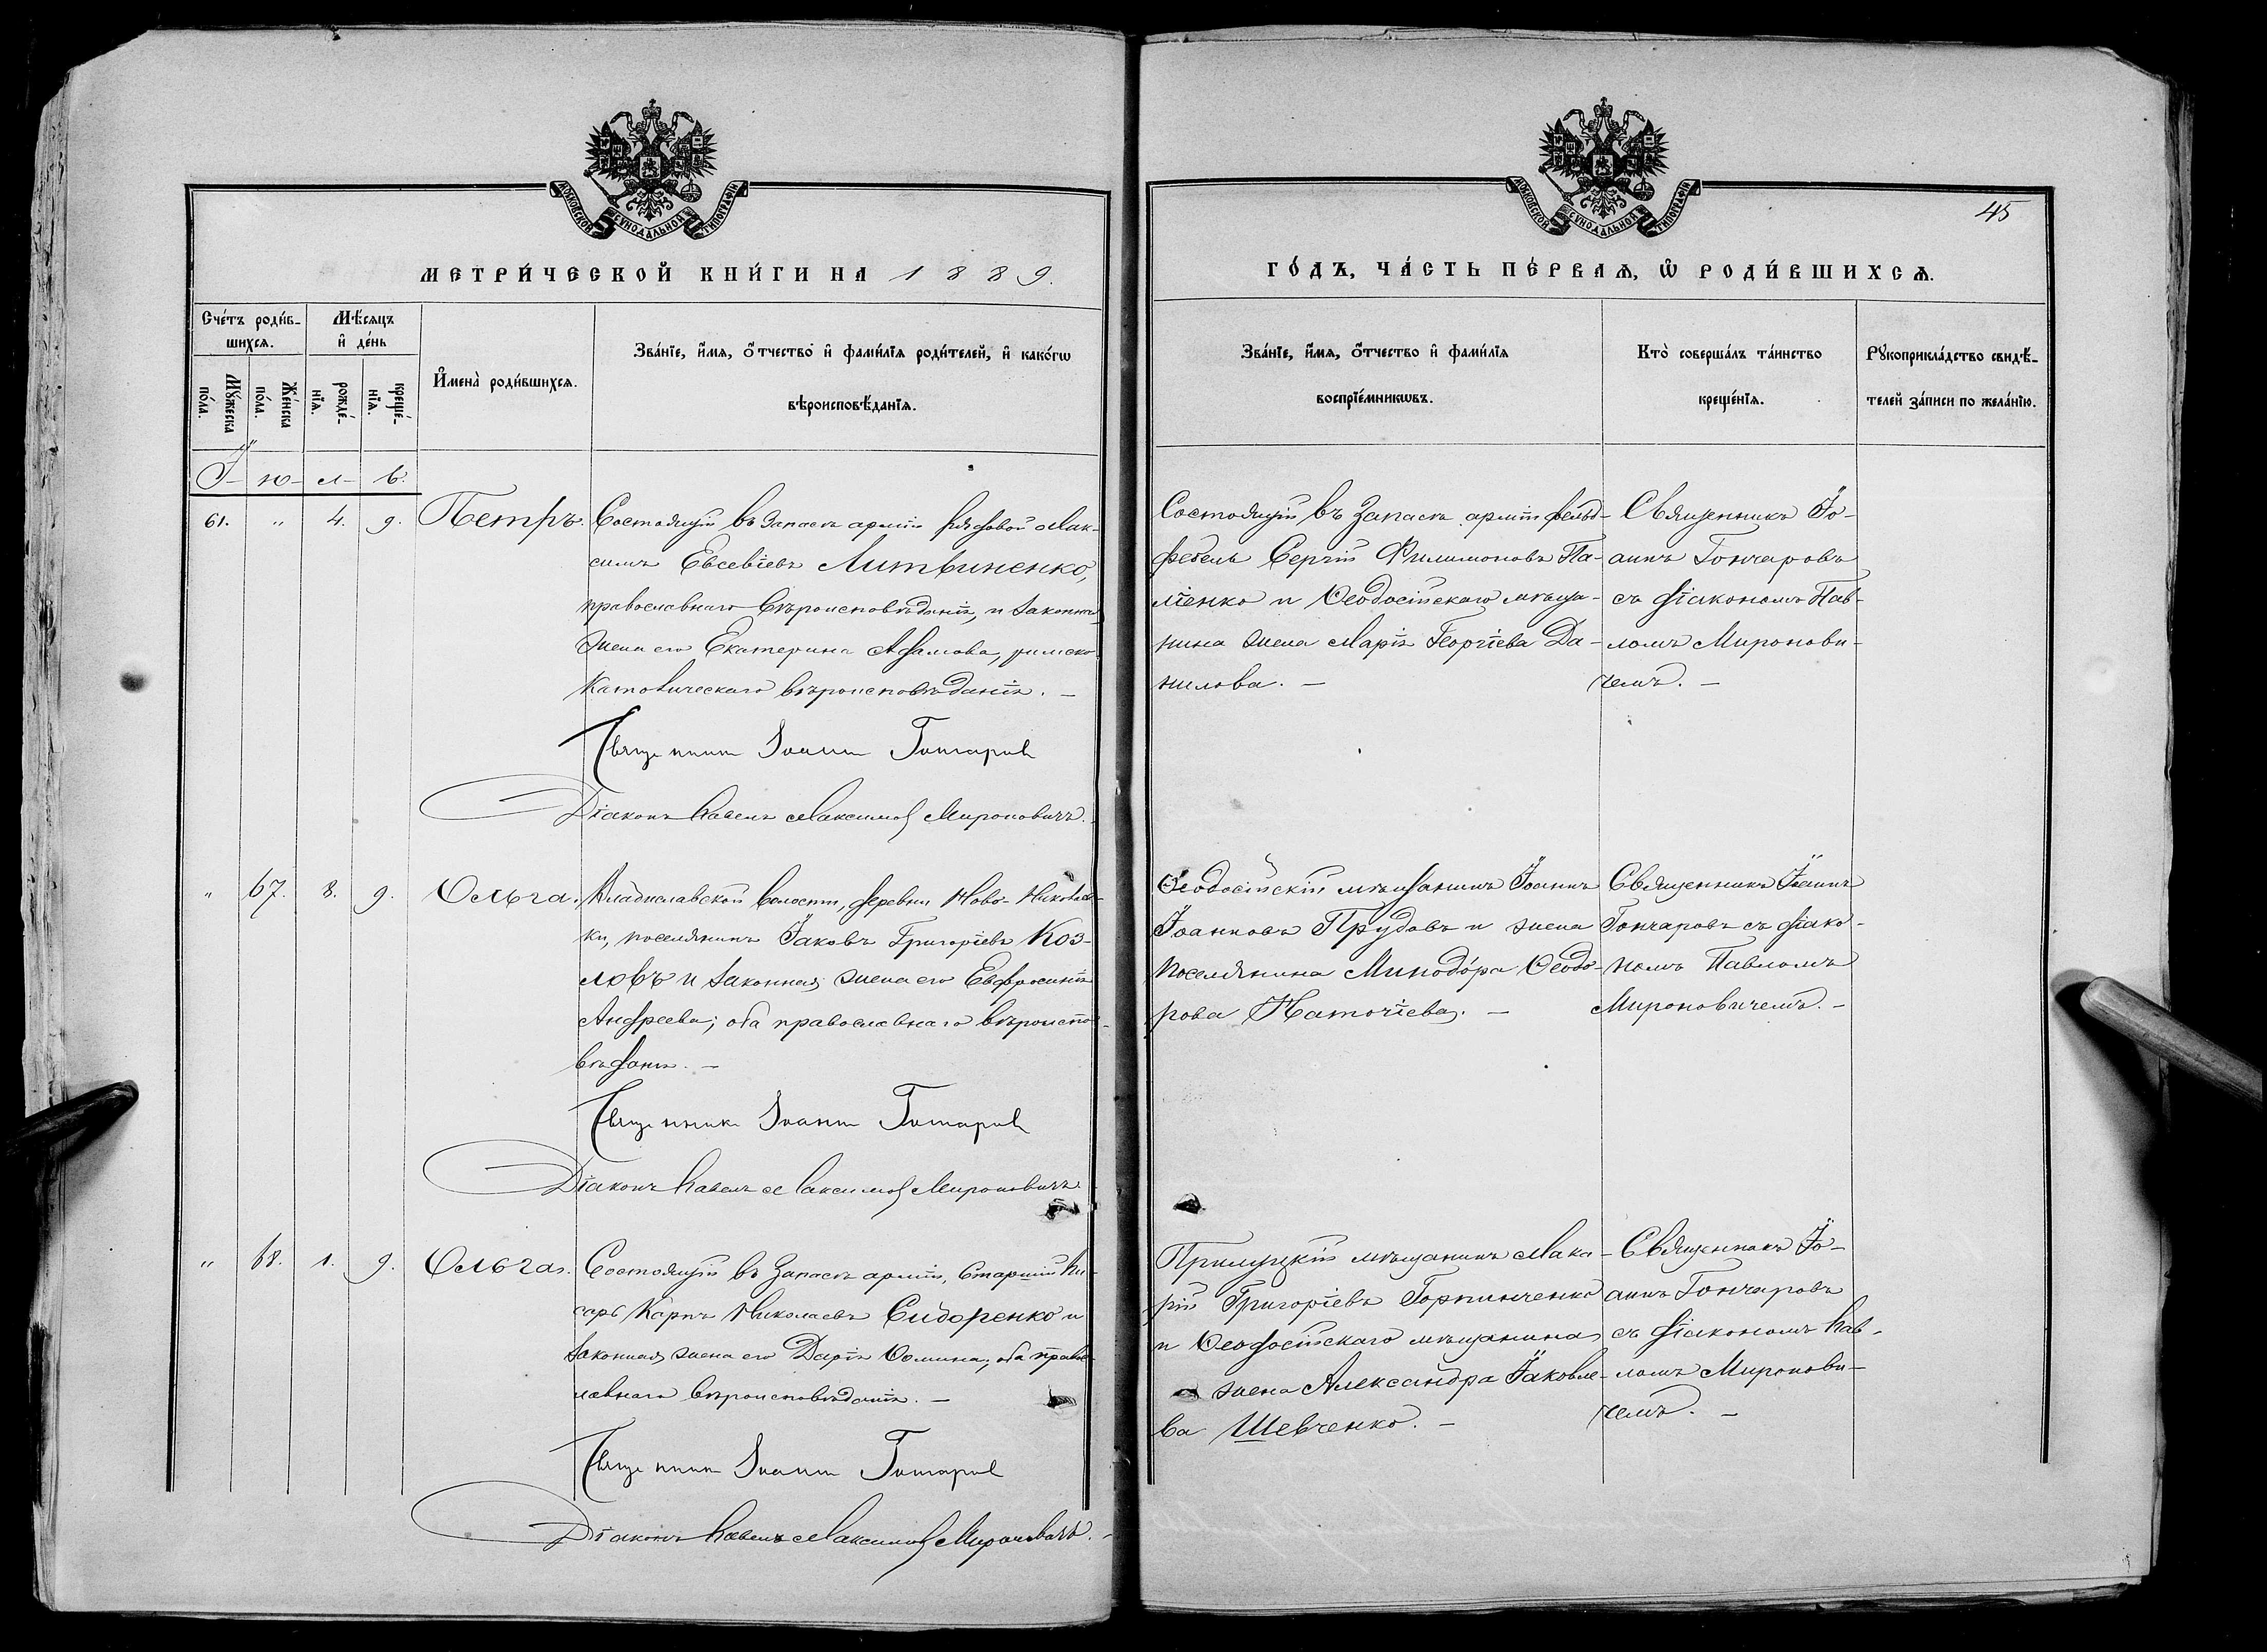 МОСКОВСКОЙ СѴНОДАЛЬНОЙ ТИПОГРАФІИ
МЕТРИ́ЧЕСКОЙ КНИ́ГИ НА 1889.
Сче́тъ роди́в-
шихсѧ.
Мѣ́сѧцъ
и҆ де́нь
Мꙋ́жеска
по́ла.
Же́нска
по́ла.
рожде́-
нїѧ.
креще́-
нїѧ.
И҆мена̀ роди́вшихсѧ.
Зва́нїе, и҆́мѧ, ѻ҆́тчество и҆ фами́лїѧ роди́телей, и҆ како́гѡ
вѣроисповѣ́данїѧ.
І- ю- л- ь.
61. " 4. 9. Петръ.
Состоящій въ запасѣ арміи рядовой Мак-
симъ Евсевіевъ Литвиненко,
православнаго вѣроисповѣданія, и законная
жена его Екатерина Адамова, римско-
католическаго вѣроисповѣданія. —
Священникъ Іоаннъ Гончаровъ
Діаконъ Павелъ Максимов Мироновичъ.
" 67. 8. 9. Ольга.
Владиславской волости, деревни Ново-Николаев-
ки, поселянинъ Іаковъ Григоріевъ Коз-
ловъ и законная жена его Евфросинія
Андреева; оба православнаго вѣроиспо-
вѣданія. —
Священникъ Іоаннъ Гончаровъ
Діаконъ Павелъ Максимов Мироновичъ
" 68. 1. 9. Ольга.
Состоящій въ запасѣ арміи, Старшій пи-
сарь Карпъ Николаевъ Сидоренко и
законная жена его Дарія Ѳомина; оба право-
славнаго вѣроисповѣданія. —
Священникъ Іоаннъ Гончаровъ
Діаконъ Павелъ Максимов Мироновичъ. -
МОСКОВСКОЙ СѴНОДАЛЬНОЙ ТИПОГРАФІИ
45
ГО́ДЪ, ЧА́СТЬ ПЕ́РВАѦ, Ѡ҆ РОДИ́ВШИХСѦ.
Зва́нїе, и҆́мѧ, ѻ҆́тчество и҆ фами́лїѧ
воспрїе́мникѡвъ.
Кто̀ соверша́лъ та́инство
креще́нїѧ.
Рꙋкоприкла́дство свидѣ́-
телей за́писи по жела́нїю.
Состоящій въ запасѣ арміи фельд-
фебель Сергій Филимоновъ Па-
ліенко и Ѳеодосійскаго мѣща-
нина жена Марія Георгіева Да-
нилова. —
Священникъ Іо-
аннъ Гончаровъ
съ діакономъ Пав-
ломъ Миронови-
чемъ. —
Ѳеодосійскій мѣщанинъ Іоаннъ
Іоанновъ Прудовъ и жена
поселянина Минодо́ра Ѳеодо-
рова Каточіева. —
Священникъ Іоаннъ
Гончаровъ съ діако-
номъ Павломъ
Мироновичемъ. —
Прилуцкій мѣщанинъ Мака-
рій Григоріевъ Горпинченко
и Ѳеодосійскаго мѣщанина
жена Александра Іаковле-
ва Шевченко. —
Священникъ Іо-
аннъ Гончаровъ
съ діакономъ Пав-
ломъ Миронови-
чемъ. —